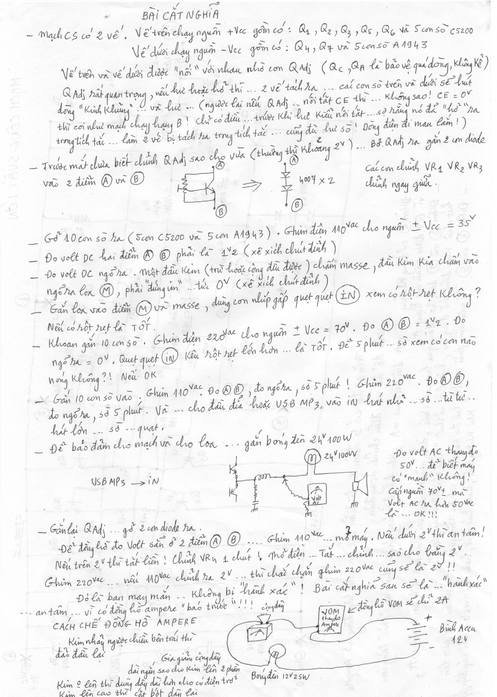 BÀI CẮT NGHĨA
- Mạch CS có 2 vế. Vế trên chạy nguồn +Vcc gồm có: Q1, Q2, Q3, Q5, Q6 và 5 con sò C5200
Vế dưới chạy nguồn -Vcc gồm có: Q4, Q7 và 5 con sò A1943
Vế trên và vế dưới được "nối" với nhau nhờ con QAdj (Q là bảo vệ quá dòng, không kể)
QAdj rất quan trọng, nếu hư hoặc hở thì... 2 vế tách ra... các con sò trên và dưới sẽ hút
dòng "Kinh Khủng"... và hư... (ngược lại nếu QAdj... nối tắt CE thì... không sao! CE = 0V
thì coi như mạch chạy hạng B! chỉ có điều... trước khi hư kiểu nối tắt... sợ rằng nó để "hở" ra
trong tích tắc... làm 2 vế bị tách ra trong tích tắc... cũng đủ hư sò! Dòng điện đi mau lắm!)
- Trước mắt chưa biết chỉnh QAdj sao cho vừa (thường thì khoảng 2V)... Bỏ QAdj ra gắn 2 con diode
vào 2 điểm (A) và (B)
A
B
⇒
A
B
4007 x 2
Các con chỉnh VR1 VR2 VR3
chỉnh ngay giữa.
- Gỡ 10 con sò ra (5 con C5200 và 5 con A1943). Ghim điện 110VAC cho nguồn ± Vcc = 35V
- Đo volt DC hai điểm (A) (B) phải là 1V2 (xê xích chút đỉnh)
- Đo volt DC ngõ ra. Một đầu kim (trừ hoặc cộng đều được) chấm masse, đầu kim kia chấm vào
ngõ ra loa (M), phải "đứng im"... tức 0V (xê xích chút đỉnh)
- Gắn loa vào điểm (M) và masse, dùng con nhíp gắp quẹt quẹt (IN) xem có rột rẹt không?
Nếu có rột rẹt là TỐT.
- Khoan gắn 10 con sò. Ghim điện 220VAC cho nguồn ± Vcc = 70V. Đo (A) (B) = 1V2. Đo
ngõ ra = 0V. Quẹt quẹt (IN) kêu rột rẹt lớn hơn... là TỐT. Để 5 phút... sờ xem có con nào
nóng không?! Nếu OK
- Gắn 10 con sò vào. Ghim 110VAC. Đo (A) (B), đo ngõ ra, sờ 5 phút! Ghim 220VAC. Đo (A) (B),
đo ngõ ra, sờ 5 phút. Và... cho đầu đĩa hoặc USB MP3, vào IN hát nhỏ... sờ... từ từ...
hát lớn... sờ... quạt.
- Để bảo đảm cho mạch và cho loa... gắn bóng đèn 24V 100W
USB MP3 → IN
M
24V 100W
Volt
AC
Đo volt AC thay đổi
50V... để biết máy
có "mạnh" không!
Cỡ nguồn 70V mà
Volt AC ra hơn 50VAC
là... OK!!!
- Gắn lại QAdj... gỡ 2 con diode ra.
Để đồng hồ đo Volt sẵn ở 2 điểm (A) (B)... Ghim 110VAC... mở máy. Nếu dưới 2V thì an tâm!
Nếu trên 2V thì tắt liền! Chỉnh VR4 1 chút! Mở điện... Tắt... chỉnh... sao cho bằng 2V.
Ghim 220VAC... nếu 110VAC chỉnh ra 2V... thì chắc chắn ghim 220VAC cũng sẽ là 2V!!
Đó là bạn may mắn... Không bị "hành xác"! Bài cắt nghĩa sau sẽ là... "hành xác"
... an tâm... vì có đồng hồ ampere "báo trước"!!!
CÁCH CHẾ ĐỒNG HỒ AMPERE
Kim nhảy ngược chiều bên trái thì
đảo đầu lại
Gia giảm cộng dây
dài ngắn sao cho kim lên 2 phân
Kim ở lên thì dùng dây dài lớn hơn có điện trở
Kim lên cao thì cắt bớt dây lại
cộng dây
VOM
thang đo
Ampere
đồng hồ VOM sẽ chỉ 2A
Bóng đèn 12V 25W
Bình Accu
12V